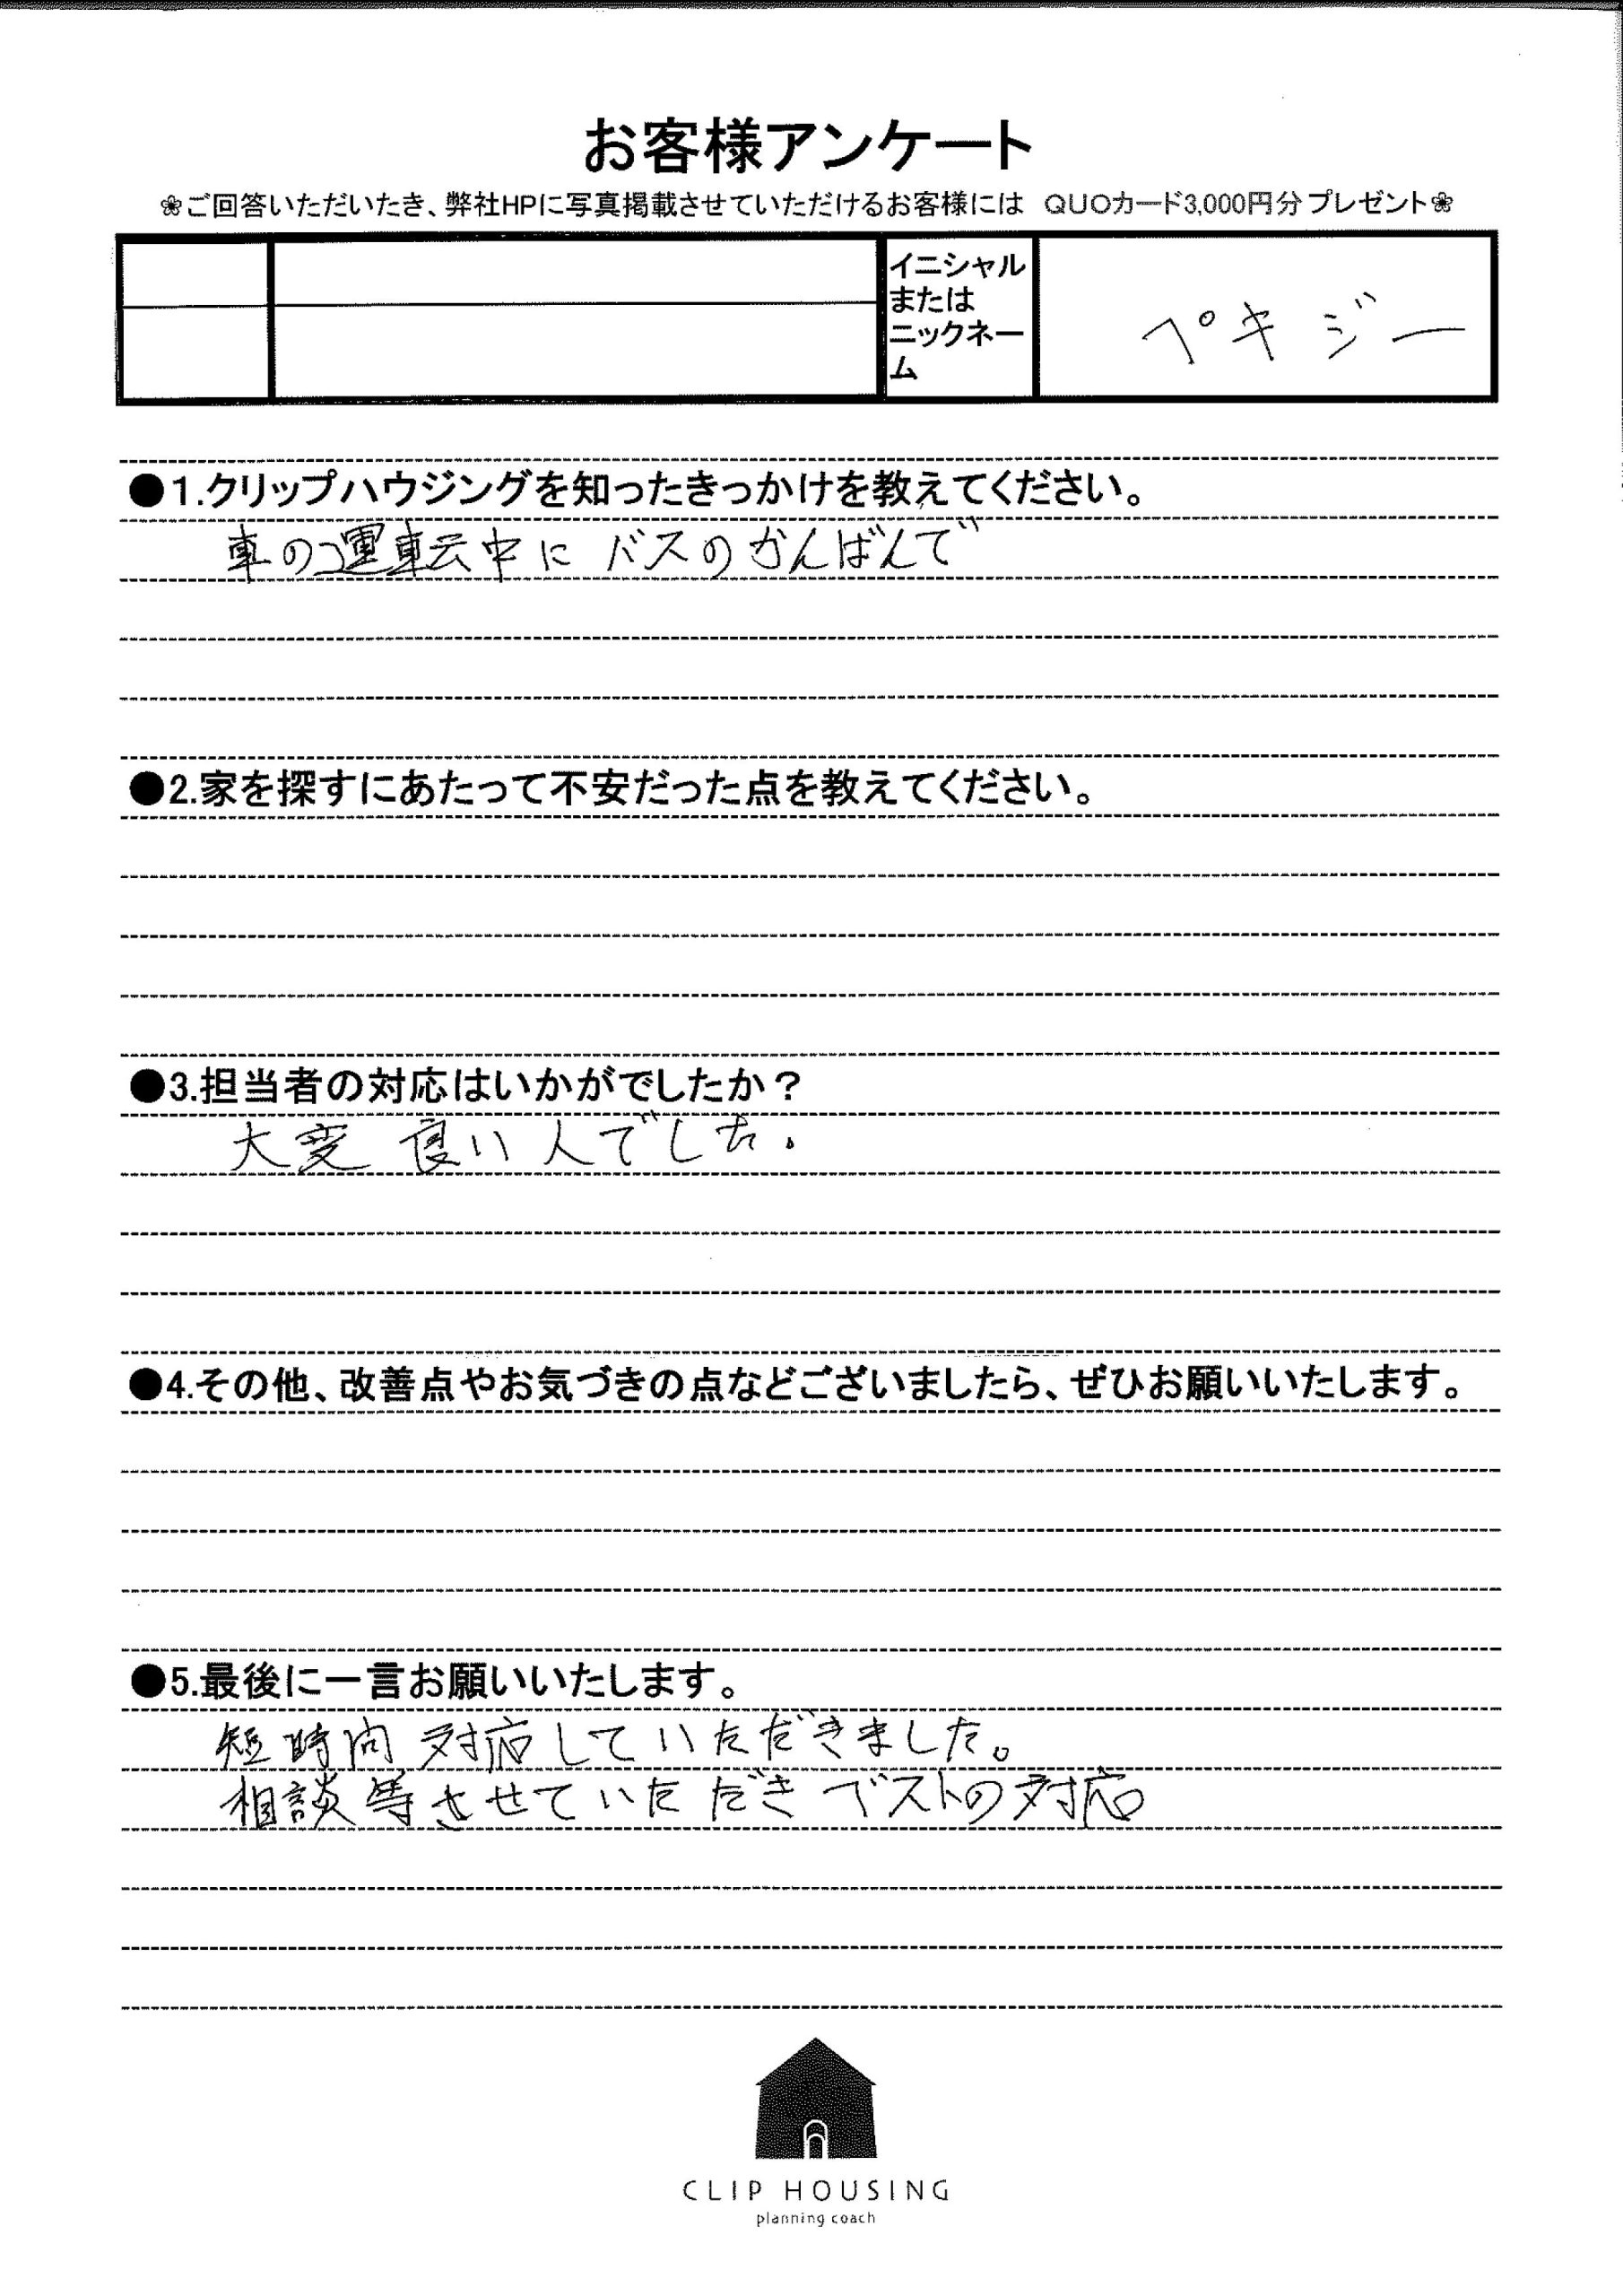 お客様アンケート
❀ご回答いただいたき、弊社HPに写真掲載させていただけるお客様には QUOカード3,000円分プレゼント❀
イニシャル
または
ニックネー
ム
ペキジー
●1.クリップハウジングを知ったきっかけを教えてください。
車の運転中に バスのかんばんで
●2.家を探すにあたって不安だった点を教えてください。
●3.担当者の対応はいかがでしたか？
大変 良い人でした.
●4.その他、改善点やお気づきの点などございましたら、ぜひお願いいたします。
●5.最後に一言お願いいたします。
短時間 対応していただきました。
相談等させていただき ベストの対応
CLIP HOUSING
planning coach